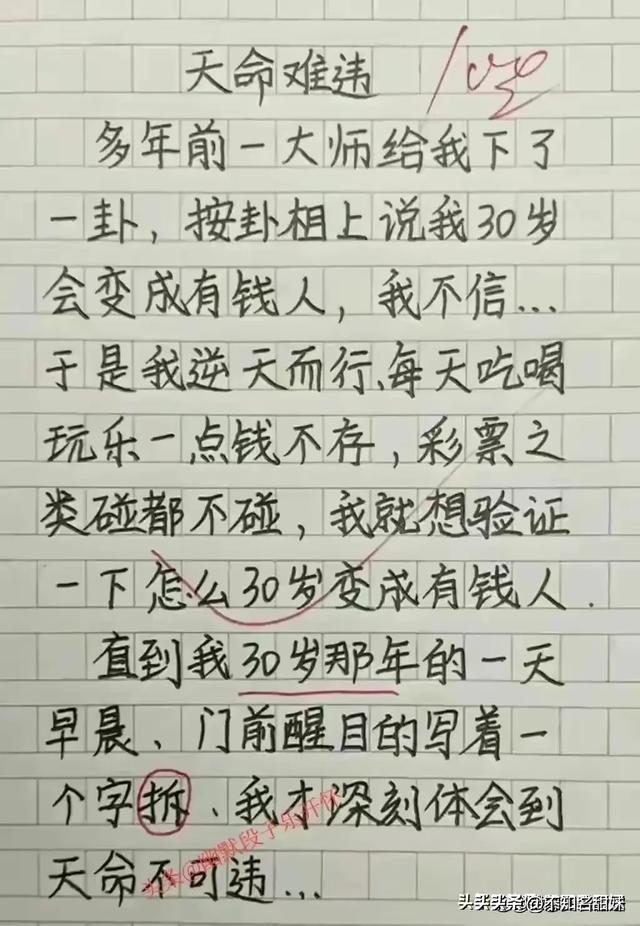 天命难违 100
多年前一大师给我下了
一卦，按卦相上说我30岁
会变成有钱人，我不信...
于是我逆天而行、每天吃喝
玩乐一点钱不存，彩票之
类碰都不碰，我就想验证
一下怎么30岁变成有钱人.
直到我30岁那年的一天
早晨、门前醒目的写着一
个字拆.我才深刻体会到
天命不可违...
头条@幽默段子乐开怀